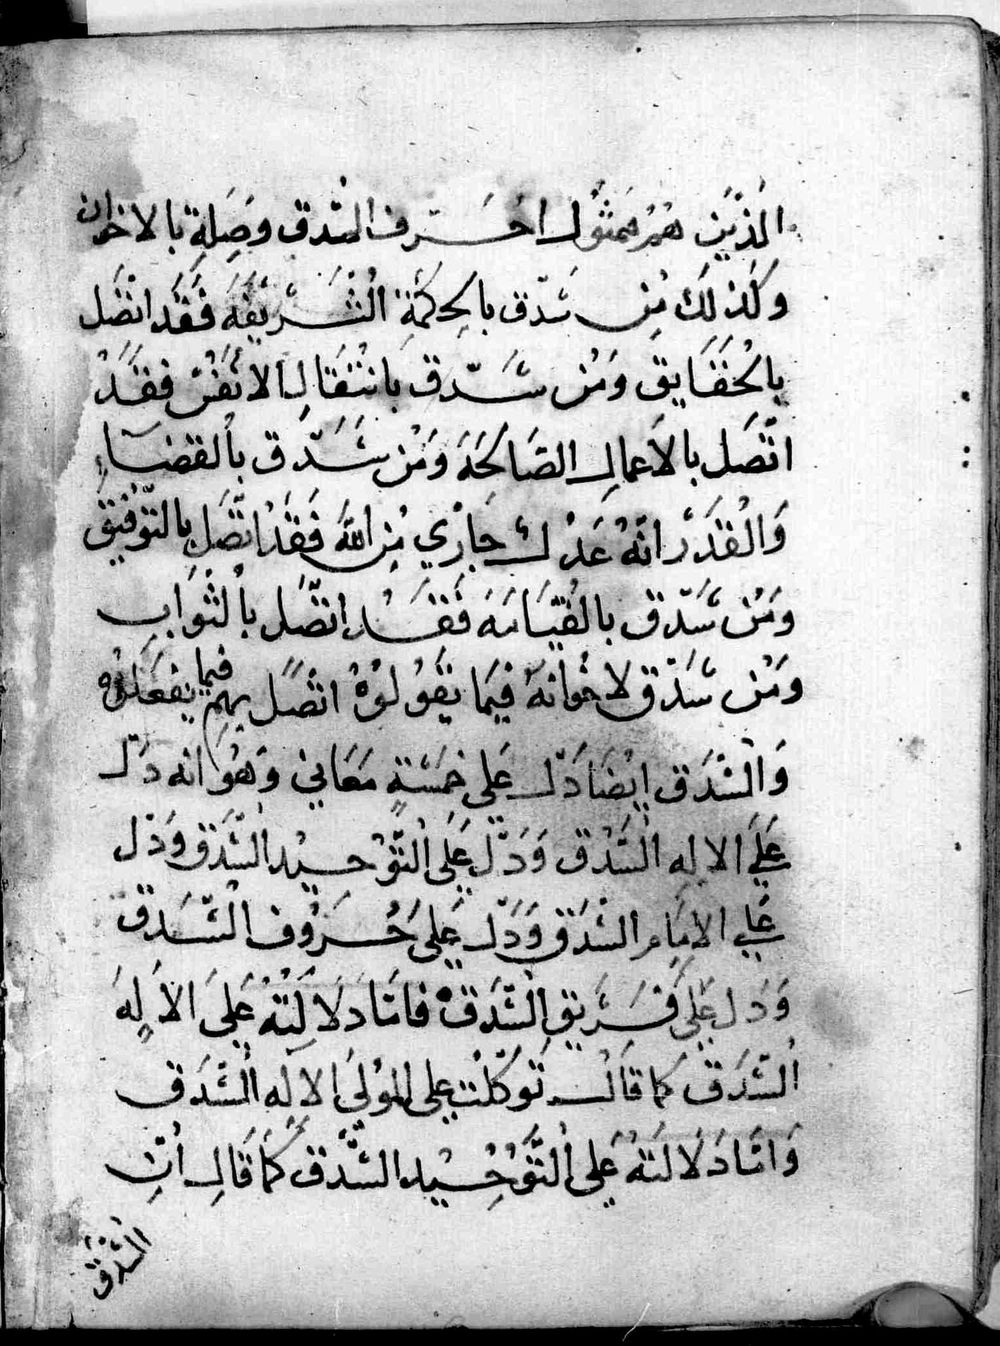 الذين هم ممثول احرف السدق وصلة بالاخوان
وكذلك من سدق بالحكمة الشريفة فقد اتصل
بالحقايق ومن سدق بانتقال الانفس فقد
اتصل بالاعمال الصالحة ومن سدق بالقضاء
والقدر انه عدل جاري من الله فقد اتصل بالتوفيق
ومن سدق بالقيامة فقد اتصل بالثواب
ومن سدق لاخوانه فيما يقولوه اتصل بهم فيما يفعلوه
والسدق ايضا دل على خمسة معاني وهو انه دل
على الاله السدق ودل على التوحيد السدق ودل
على الامام السدق ودل على حروف السدق
ودل على فريق السدق فاما دلالته على الاله
السدق كما قال توكلت على المولى الاله السدق
واما دلالته على التوحيد السدق كما قال ان
السدق